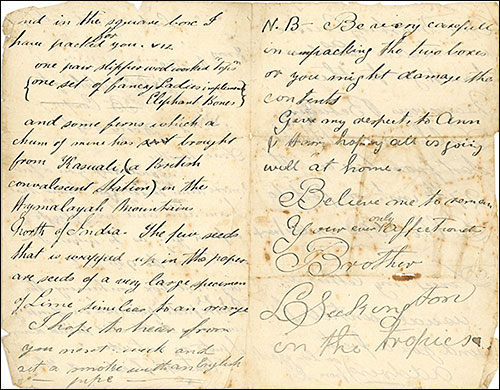 and in the square box I
have packed for you. viz
one pair slippers wool worked
{one set of fancy Ladies implements
Elephant Bones}
and some ferns which a
chum of mine has brought
from Kasuale (a British
convalescent station) in the
Hymalayah Mountains
North of India. The few seeds
that is wrapped up in the paper
are seeds of a very large specimen
of Lime similear to an orange
I hope to hear from
you next week and
get a smoke with an English
pipe
N.B- Be avery carefull
in unpacking the two boxes
or you might damage the
contents
Give my respects to Ann
& Harry hoping all is going
well at home.
Believe me to remain
Your ever only affectionate
Brother
on the tropics